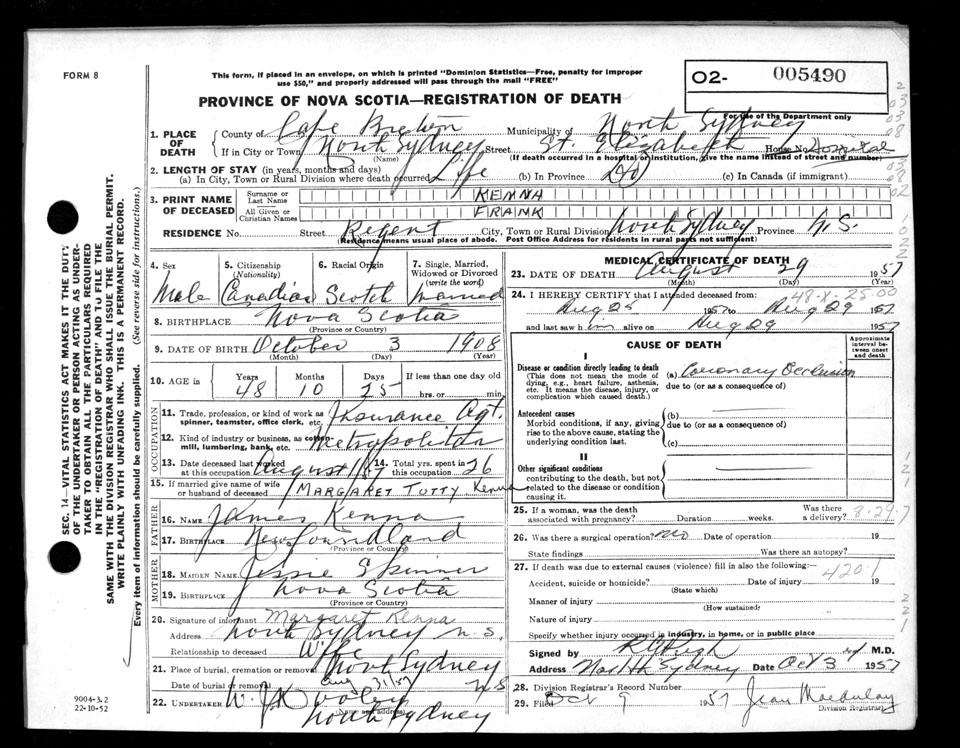 FORM 8
This form, if placed in an envelope, on which is printed "Dominion Statistics—Free, penalty for improper
use $50," and properly addressed will pass through the mail "FREE"
O2- 005490
For use of the Department only
PROVINCE OF NOVA SCOTIA—REGISTRATION OF DEATH
1. PLACE OF DEATH
County of Cape Breton Municipality of North Sydney
If in City or Town North Sydney Street St. Elizabeth House No. Hospital
(Name) (If death occurred in a hospital or institution, give the name instead of street and number)
2. LENGTH OF STAY (in years, months and days)
(a) In City, Town or Rural Division where death occurred Life (b) In Province Do (c) In Canada (if immigrant)
3. PRINT NAME OF DECEASED
Surname or Last Name KENNA
All Given or Christian Names FRANK
RESIDENCE No. Street Regent City, Town or Rural Division North Sydney Province N.S.
(Residence means usual place of abode. Post Office Address for residents in rural parts not sufficient)
4. Sex 5. Citizenship (Nationality) 6. Racial Origin 7. Single, Married, Widowed or Divorced (write the word)
Male Canadian Scotch married
8. BIRTHPLACE Nova Scotia
(Province or Country)
9. DATE OF BIRTH October 3 1908
(Month) (Day) (Year)
10. AGE in Years Months Days If less than one day old
48 10 25 hrs. or min.
OCCUPATION
11. Trade, profession or kind of work as spinner, teamster, office clerk, etc. Insurance Agt.
12. Kind of industry or business, as cotton-mill, lumbering, bank, etc. Metropolitan
13. Date deceased last worked at this occupation August 14. Total yrs. spent in this occupation 26
15. If married give name of wife or husband of deceased MARGARET TUTTY Kenna
FATHER
16. NAME James Kenna
17. BIRTHPLACE Newfoundland
(Province or Country)
MOTHER
18. MAIDEN NAME Jessie Skinner
19. BIRTHPLACE Nova Scotia
(Province or Country)
20. Signature of informant Margaret Kenna
Address North Sydney N.S.
Relationship to deceased Wife
21. Place of burial, cremation or removal North Sydney
Date of burial or removal Aug 31/57 N S
22. UNDERTAKER W. J.
(Name and address)
North Sydney
MEDICAL CERTIFICATE OF DEATH
23. DATE OF DEATH August 29 1957
(Month) (Day)
24. I HEREBY CERTIFY that I attended deceased from:
48-X-25.00
Aug 25 1957 to Aug 29 1957
and last saw him alive on Aug 29 1957
CAUSE OF DEATH
Approximate interval between onset and death
I
Disease or condition directly leading to death
(This does not mean the mode of dying, e.g., heart failure, asthenia, etc. It means the disease, injury, or complication which caused death.)
(a) Coronary Occlusion
due to (or as a consequence of)
Antecedent causes
Morbid conditions, if any, giving rise to the above cause, stating the underlying condition last.
(b)
due to (or as a consequence of)
(c)
II
Other significant conditions
contributing to the death, but not related to the disease or condition causing it.
25. If a woman, was the death associated with pregnancy? Duration weeks. Was there a delivery? 8-29-7
26. Was there a surgical operation? no Date of operation 19
State findings Was there an autopsy?
27. If death was due to external causes (violence) fill in also the following:— 420.1
Accident, suicide or homicide? Date of injury 19
(State which)
Manner of injury
(How sustained)
Nature of injury
Specify whether injury occurred in industry, in home, or in public place
Signed by M.D.
Address North Sydney Date Oct 3 1957
28. Division Registrar's Record Number
29. Filed Oct 9 1957 Jean
Division Registrar
SEC. 14—VITAL STATISTICS ACT MAKES IT THE DUTY
OF THE UNDERTAKER OR PERSON ACTING AS UNDER-
TAKER TO OBTAIN ALL THE PARTICULARS REQUIRED
IN THE "REGISTRATION OF DEATH" AND TO FILE THE
SAME WITH THE DIVISION REGISTRAR WHO SHALL ISSUE THE BURIAL PERMIT.
WRITE PLAINLY WITH UNFADING INK. THIS IS A PERMANENT RECORD.
Every item of information should be carefully supplied. (See reverse side for instructions.)
9004-3.2
22-10-52